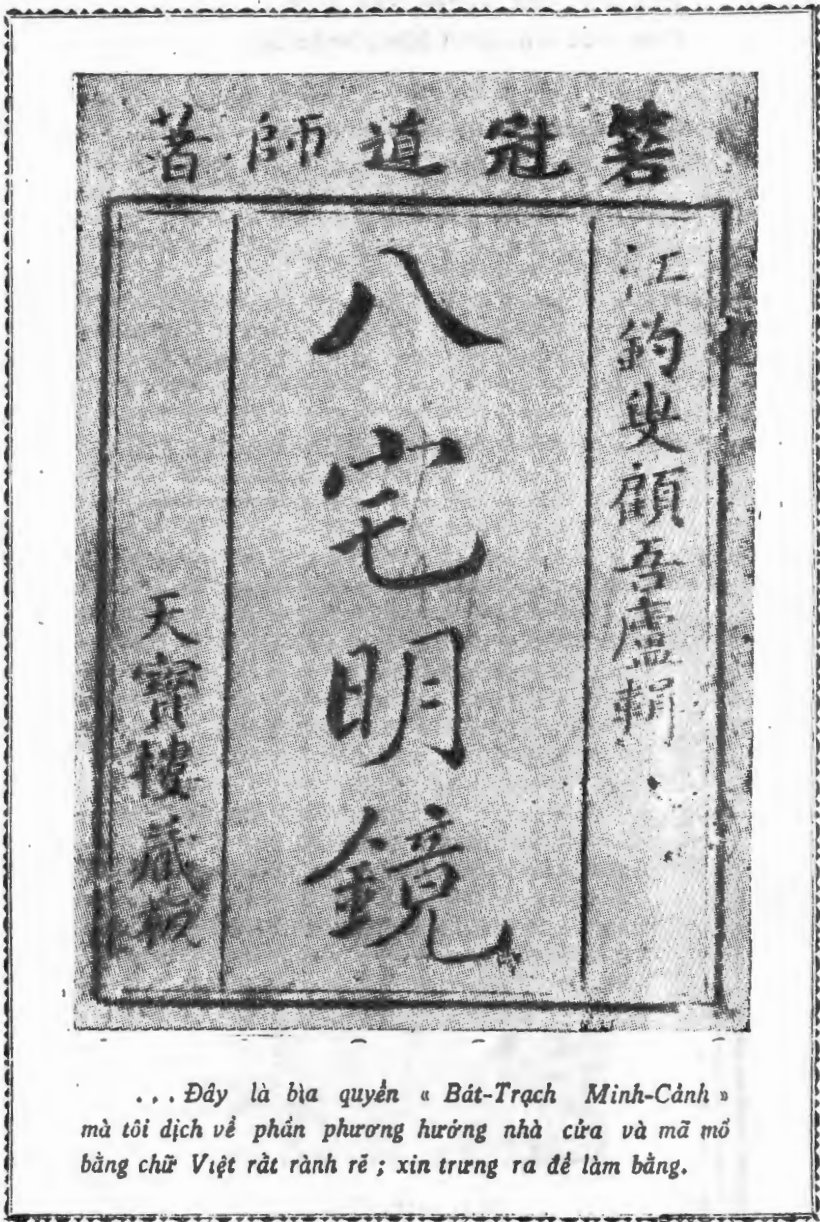 箬冠道師著
江鈞叟顧吾廬輯
八宅明鏡
天寶樓藏板
... Đây là bìa quyển « Bát-Trạch Minh-Cảnh »
mà tôi dịch về phần phương hướng nhà cửa và mã mồ
bằng chữ Việt rất rành rẽ ; xin trưng ra để làm bằng.